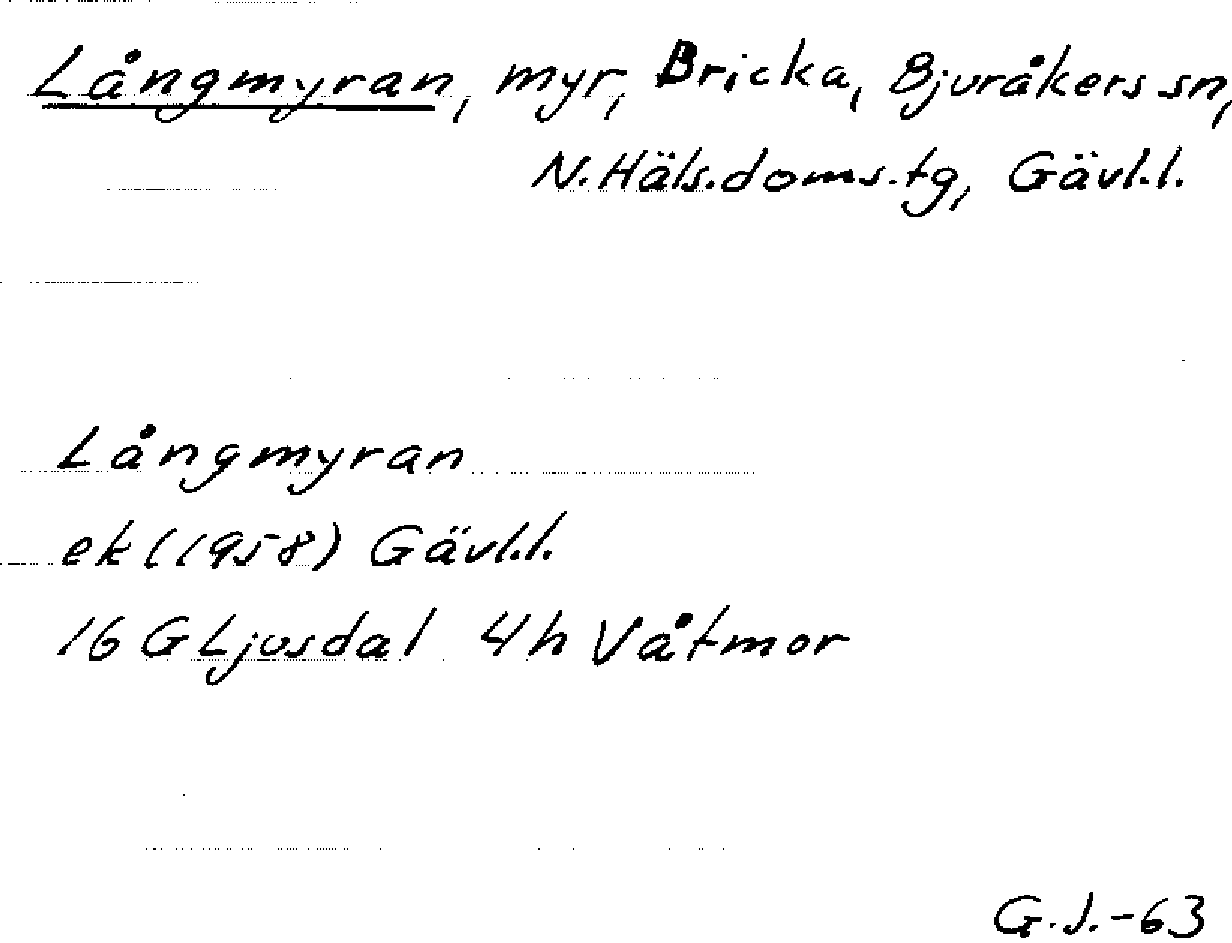 Långmyran, myr, Bricka, Bjuråkers sn,
N.Häls.doms.tg, Gävl.l.
Långmyran
ek (1958) Gävl.l.
16 G Ljusdal 4h Våtmor
G.J.-63